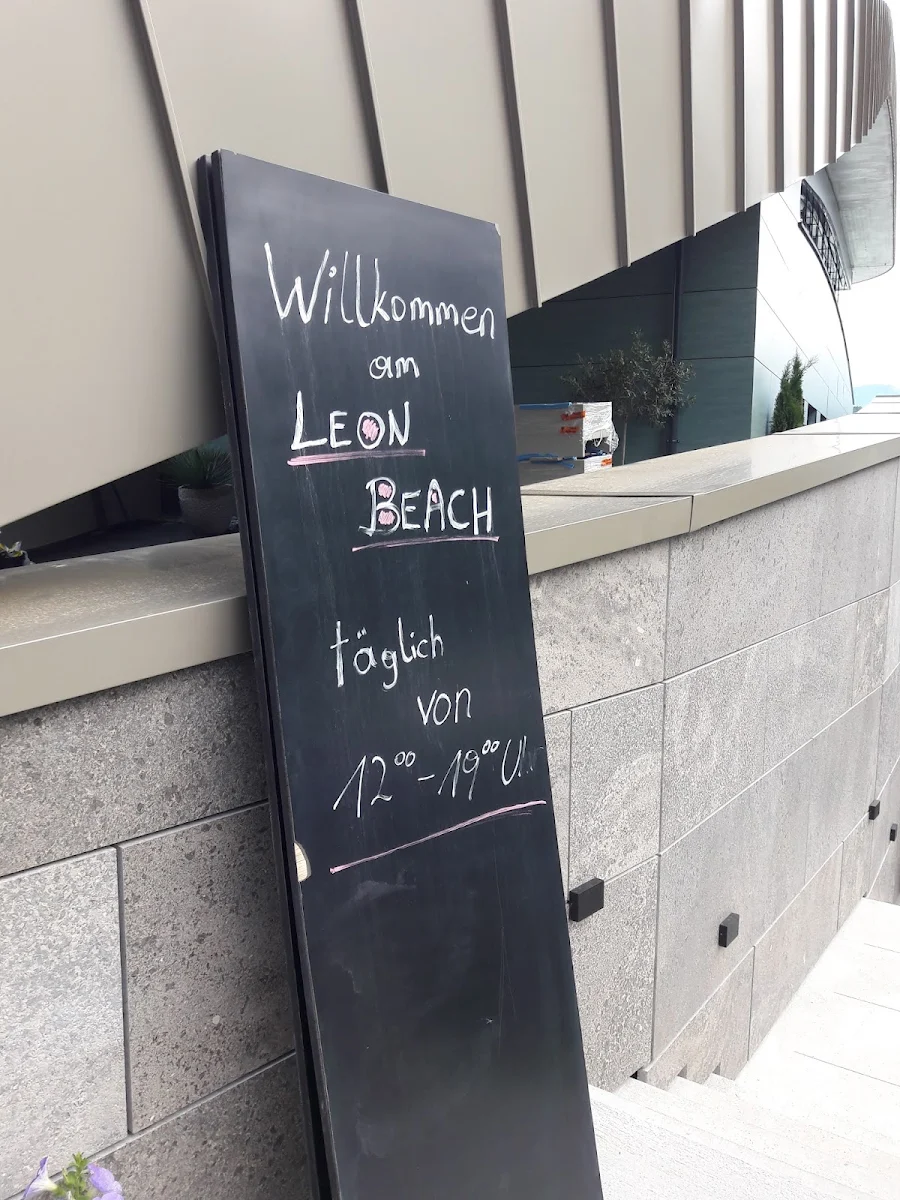 Willkommen
am
LEON
BEACH
täglich
von
12⁰⁰ - 19⁰⁰ Uhr